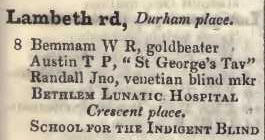 Lambeth rd, Durham place.
8 Bemmam W R, goldbeater
Austin T P, “ St George's Tav”
Randall Jno, venetian blind mkr
BETHLEM LUNATIC HOSPITAL
Crescent place.
SCHOOL FOR THE INDIGENT BLIND